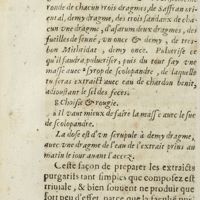 ronde de chacun trois dragmes, de saffran ori-
ental, demy dragme, des trois santaux de cha-
cun vne dragme, d'asarum deux dragmes, des
fueilles de senné, vn once & demy, de troch-
bon Mithridat, demy once. Puluerise ce
qu'il faudra puluerizer, puis du tout fay vne
masse auec ⁴ syrop de scolopandre, de laquelle
tu feras extraict auec eau de chardon benit,
adioustant le sel des feces.
8 Choisie & rougie.
⁴ il vaut mieux de faire la masse auec le suc
de scolopandre.
La dose est d'vn scrupule à demy dragme,
auec vne dragme de l'eau de l'extrait vrius au
matin le iour auant l'accez.
Ceste façon de preparer les extraicts
purgatifs tant simples que composez est
triuiale, & bien souuent ne produit que
fort peu d'effet, parce que la